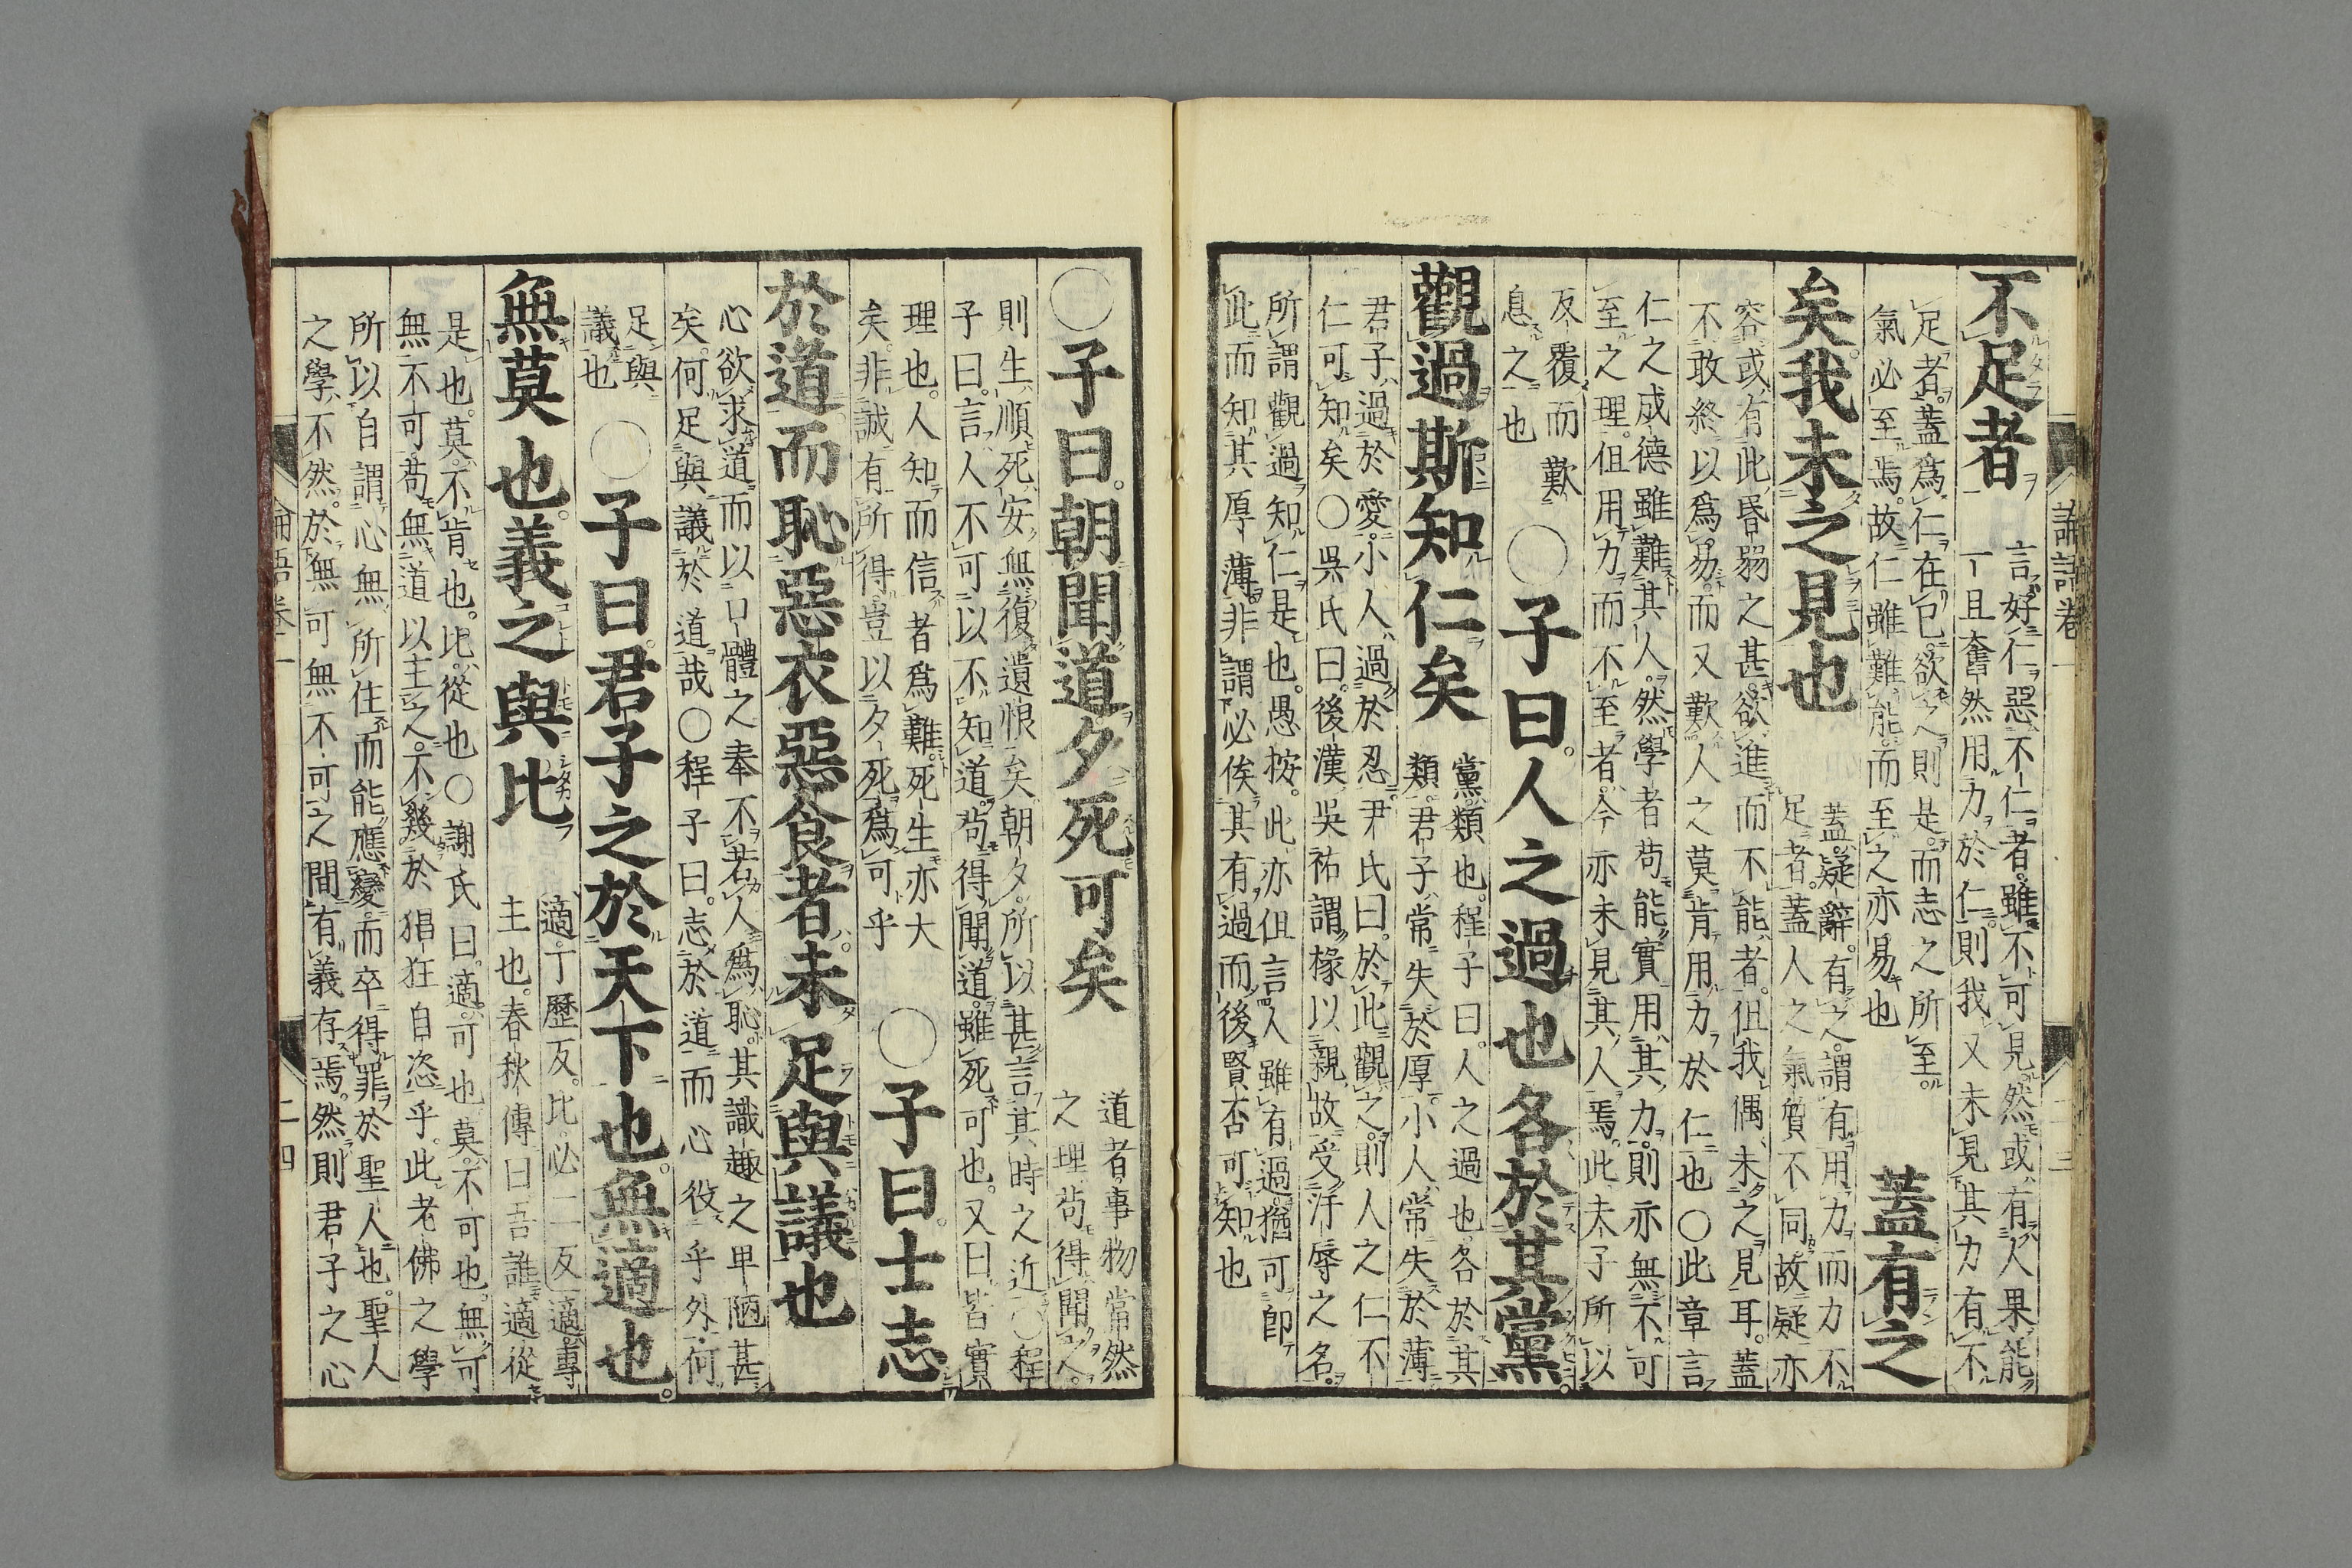 論語卷一
不足者
言好仁惡不仁者雖不可見然或有人果能
一旦奮然用力於仁則我又未見其力有不
足者蓋爲仁在己欲之則是而志之所至
氣必至焉故仁雖難能而至之亦易也
蓋有之
矣我未之見也
蓋疑辭有之謂有用力而力不
足者蓋人之氣質不同故疑亦
容或有此昏弱之甚欲進而不能者但我偶未之見耳蓋
不敢終以爲易而又歎人之莫肯用力於仁也○此章言
仁之成德雖難其人然學者苟能實用其力則亦無不可
至之理但用力而不至者今亦未見其人焉此夫子所以
反覆而歎
息之也
○子曰人之過也各於其黨
觀過斯知仁矣
黨類也程子曰人之過也各於其
類君子常失於厚小人常失於薄
君子過於愛小人過於忍尹氏曰於此觀之則人之仁不
仁可知矣○吳氏曰後漢吳祐謂掾以親故受汙辱之名
所謂觀過知仁是也愚按此亦但言人雖有過猶可即
此而知其厚薄非謂必俟其有過而後賢否可知也
○子曰朝聞道夕死可矣
道者事物當然
之理苟得聞之
則生順死安無復遺恨矣朝夕所以甚言其時之近○程
子曰言人不可以不知道苟得聞道雖死可也又曰皆實
理也人知而信者爲難死生亦大
矣非誠有所得豈以夕死爲可乎
○子曰士志
於道而恥惡衣惡食者未足與議也
心欲求道而以口體之奉不若人爲恥其識趣之卑陋甚
矣何足與議於道哉○程子曰志於道而心役乎外何
足與
議也
○子曰君子之於天下也無適也
無莫也義之與比
適丁歷反比必二反適專
主也春秋傳曰吾誰適從
是也莫不肯也比從也○謝氏曰適可也莫不可也無可
無不可苟無道以主之不幾於猖狂自恣乎此老佛之學
所以自謂心無所住而能應變而卒得罪於聖人也聖人
之學不然於無可無不可之間有義存焉然則君子之心
論語卷一
二四